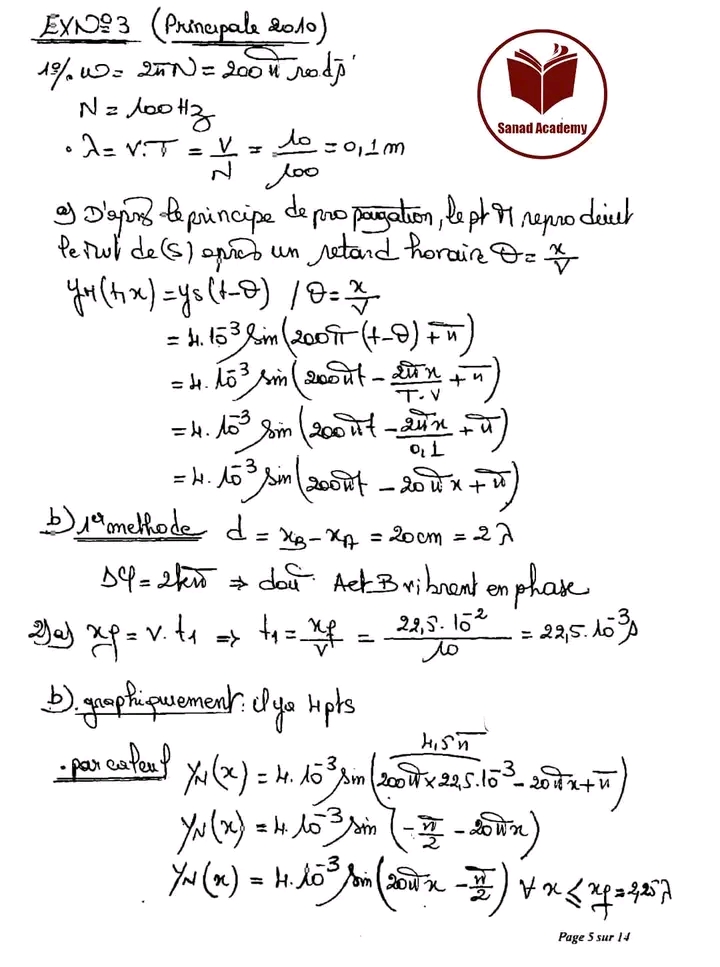 EXN°3 (Principale 2010)
Sanad Academy
1°/. ω = 2πN = 200π rad.s⁻¹
N = 100Hz
• λ = v.T = V/N = 10/100 = 0,1m
a) D'après le principe de propagation, le pt M reproduit
le mvt de (S) après un retard horaire θ = x/V
y_M(t,x) = y_S(t-θ) / θ = x/V
= 4.10⁻³ sin(200π(t-θ)+π)
= 4.10⁻³ sin(200πt - 2πx/T.V + π)
= 4.10⁻³ sin(200πt - 2πx/0,1 + π)
= 4.10⁻³ sin(200πt - 20πx + π)
b) 1ère methode d = x_B - x_A = 20cm = 2λ
Δφ = 2kπ ⇒ doù A et B vibrent en phase
2) a) x_f = v.t₁ ⇒ t₁ = x_f/v = 22,5.10⁻²/10 = 22,5.10⁻³s
b). graphiquement: il ya 4pts
4,5π
• par calcul y_N(x) = 4.10⁻³ sin(200π×22,5.10⁻³ - 20πx + π)
y_N(x) = 4.10⁻³ sin(-π/2 - 20πx)
y_N(x) = 4.10⁻³ sin(20πx - π/2) ∀ x ≤ x_f = 2,25λ
Page 5 sur 14